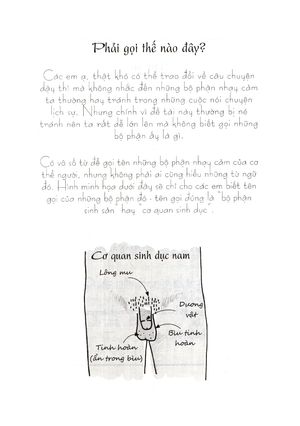 Phải gọi thế nào đây?
Các em ạ, thật khó có thể trao đổi về câu chuyện
dậy thì mà không nhắc đến những bộ phận nhạy cảm
ta thường hay tránh trong những cuộc nói chuyện
lịch sự. Nhưng chính vì đề tài này thường bị né
tránh nên ta rất dễ lớn lên mà không biết gọi những
bộ phận ấy là gì.
Có vô số từ để gọi tên những bộ phận nhạy cảm của cơ
thể người, nhưng không phải ai cũng hiểu những từ ngữ
đó. Hình minh họa dưới đây sẽ chỉ cho các em biết tên
gọi của những bộ phận đó - tên gọi đúng là "bộ phận
sinh sản" hay "cơ quan sinh dục".
Cơ quan sinh dục nam
Lông mu
Dương
vật
Bìu tinh
hoàn
Tinh hoàn
(ẩn trong bìu)